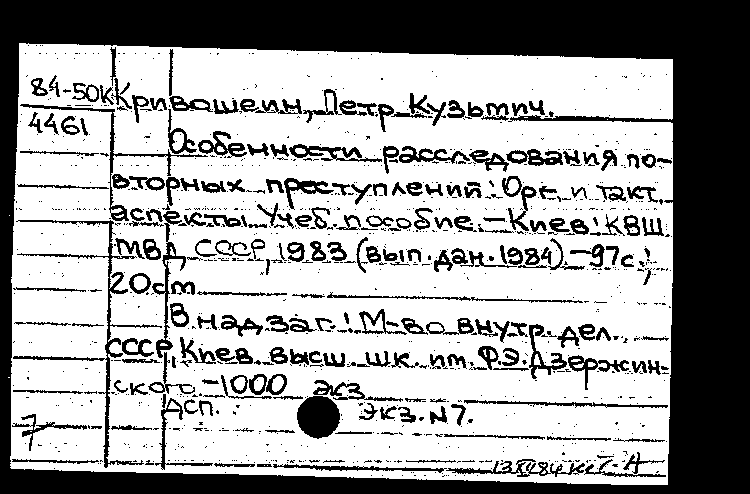 84-50К Кривошеин, Петр Кузьмич.
4461
Особенности расследования по-
вторных преступлений: Орг. и такт.
аспекты. Учеб. пособие. – Киев: КВШ
МВД СССР, 1983 (вып. дан. 1984). – 97с.;
20см
В надзаг.: М-во внутр. дел
СССР, Киев. высш. шк. им. Ф.Э. Дзержин-
ского – 1000 экз
ДСП. Экз. N7.
7